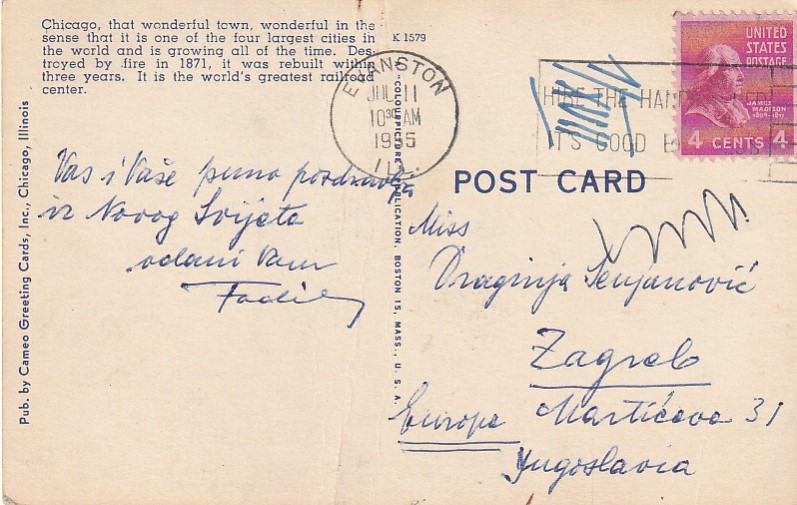 Chicago, that wonderful town, wonderful in the
sense that it is one of the four largest cities in
the world and is growing all of the time. Des-
troyed by fire in 1871, it was rebuilt within
three years. It is the world's greatest railroad
center.
K 1579
EVANSTON
JUL 11
10 30 AM
1955
ILL.
HIRE THE HAN
IT'S GOOD B
UNITED
STATES
POSTAGE
JAMES
MADISON
1809-1817
4 CENTS 4
POST CARD
Pub. by Cameo Greeting Cards, Inc., Chicago, Illinois
"COLOURPICTURE" PUBLICATION, BOSTON 15, MASS., U. S. A.
Vas i Vaše puno pozdravlja
iz Novog Svijeta
odani Vam
Fadil
Miss
Draginja Senjanović
Zagreb
Martićeva 31
Europe
Yugoslavia